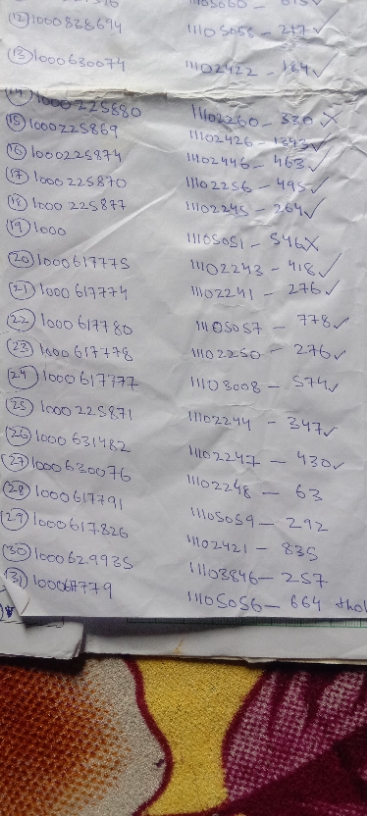 (12) 1000828694 11105058 - 217 ✓
(13) 1000630074 11102422 - 184 ✓
(14) 1000225880 11102260 - 330 X
(15) 1000225869 11102426 - 1393 ✓
(16) 1000225874 11102446 - 463 ✓
(17) 1000225870 11102256 - 495 ✓
(18) 1000225877 11102245 - 264 ✓
(19) 1000 11105051 - 546 X
(20) 1000617775 11102243 - 418 ✓
(21) 1000617774 11102241 - 276 ✓
(22) 1000617780 11105057 - 778 ✓
(23) 1000617778 11102250 - 276 ✓
(24) 1000617777 11103008 - 574 ✓
(25) 1000225871 11102244 - 347 ✓
(26) 1000631482 11102247 - 430 ✓
(27) 1000630076 11102248 - 63
(28) 1000617791 11105059 - 292
(29) 1000617826 11102421 - 835
(30) 1000629935 11103846 - 257
(31) 100067779 11105056 - 664